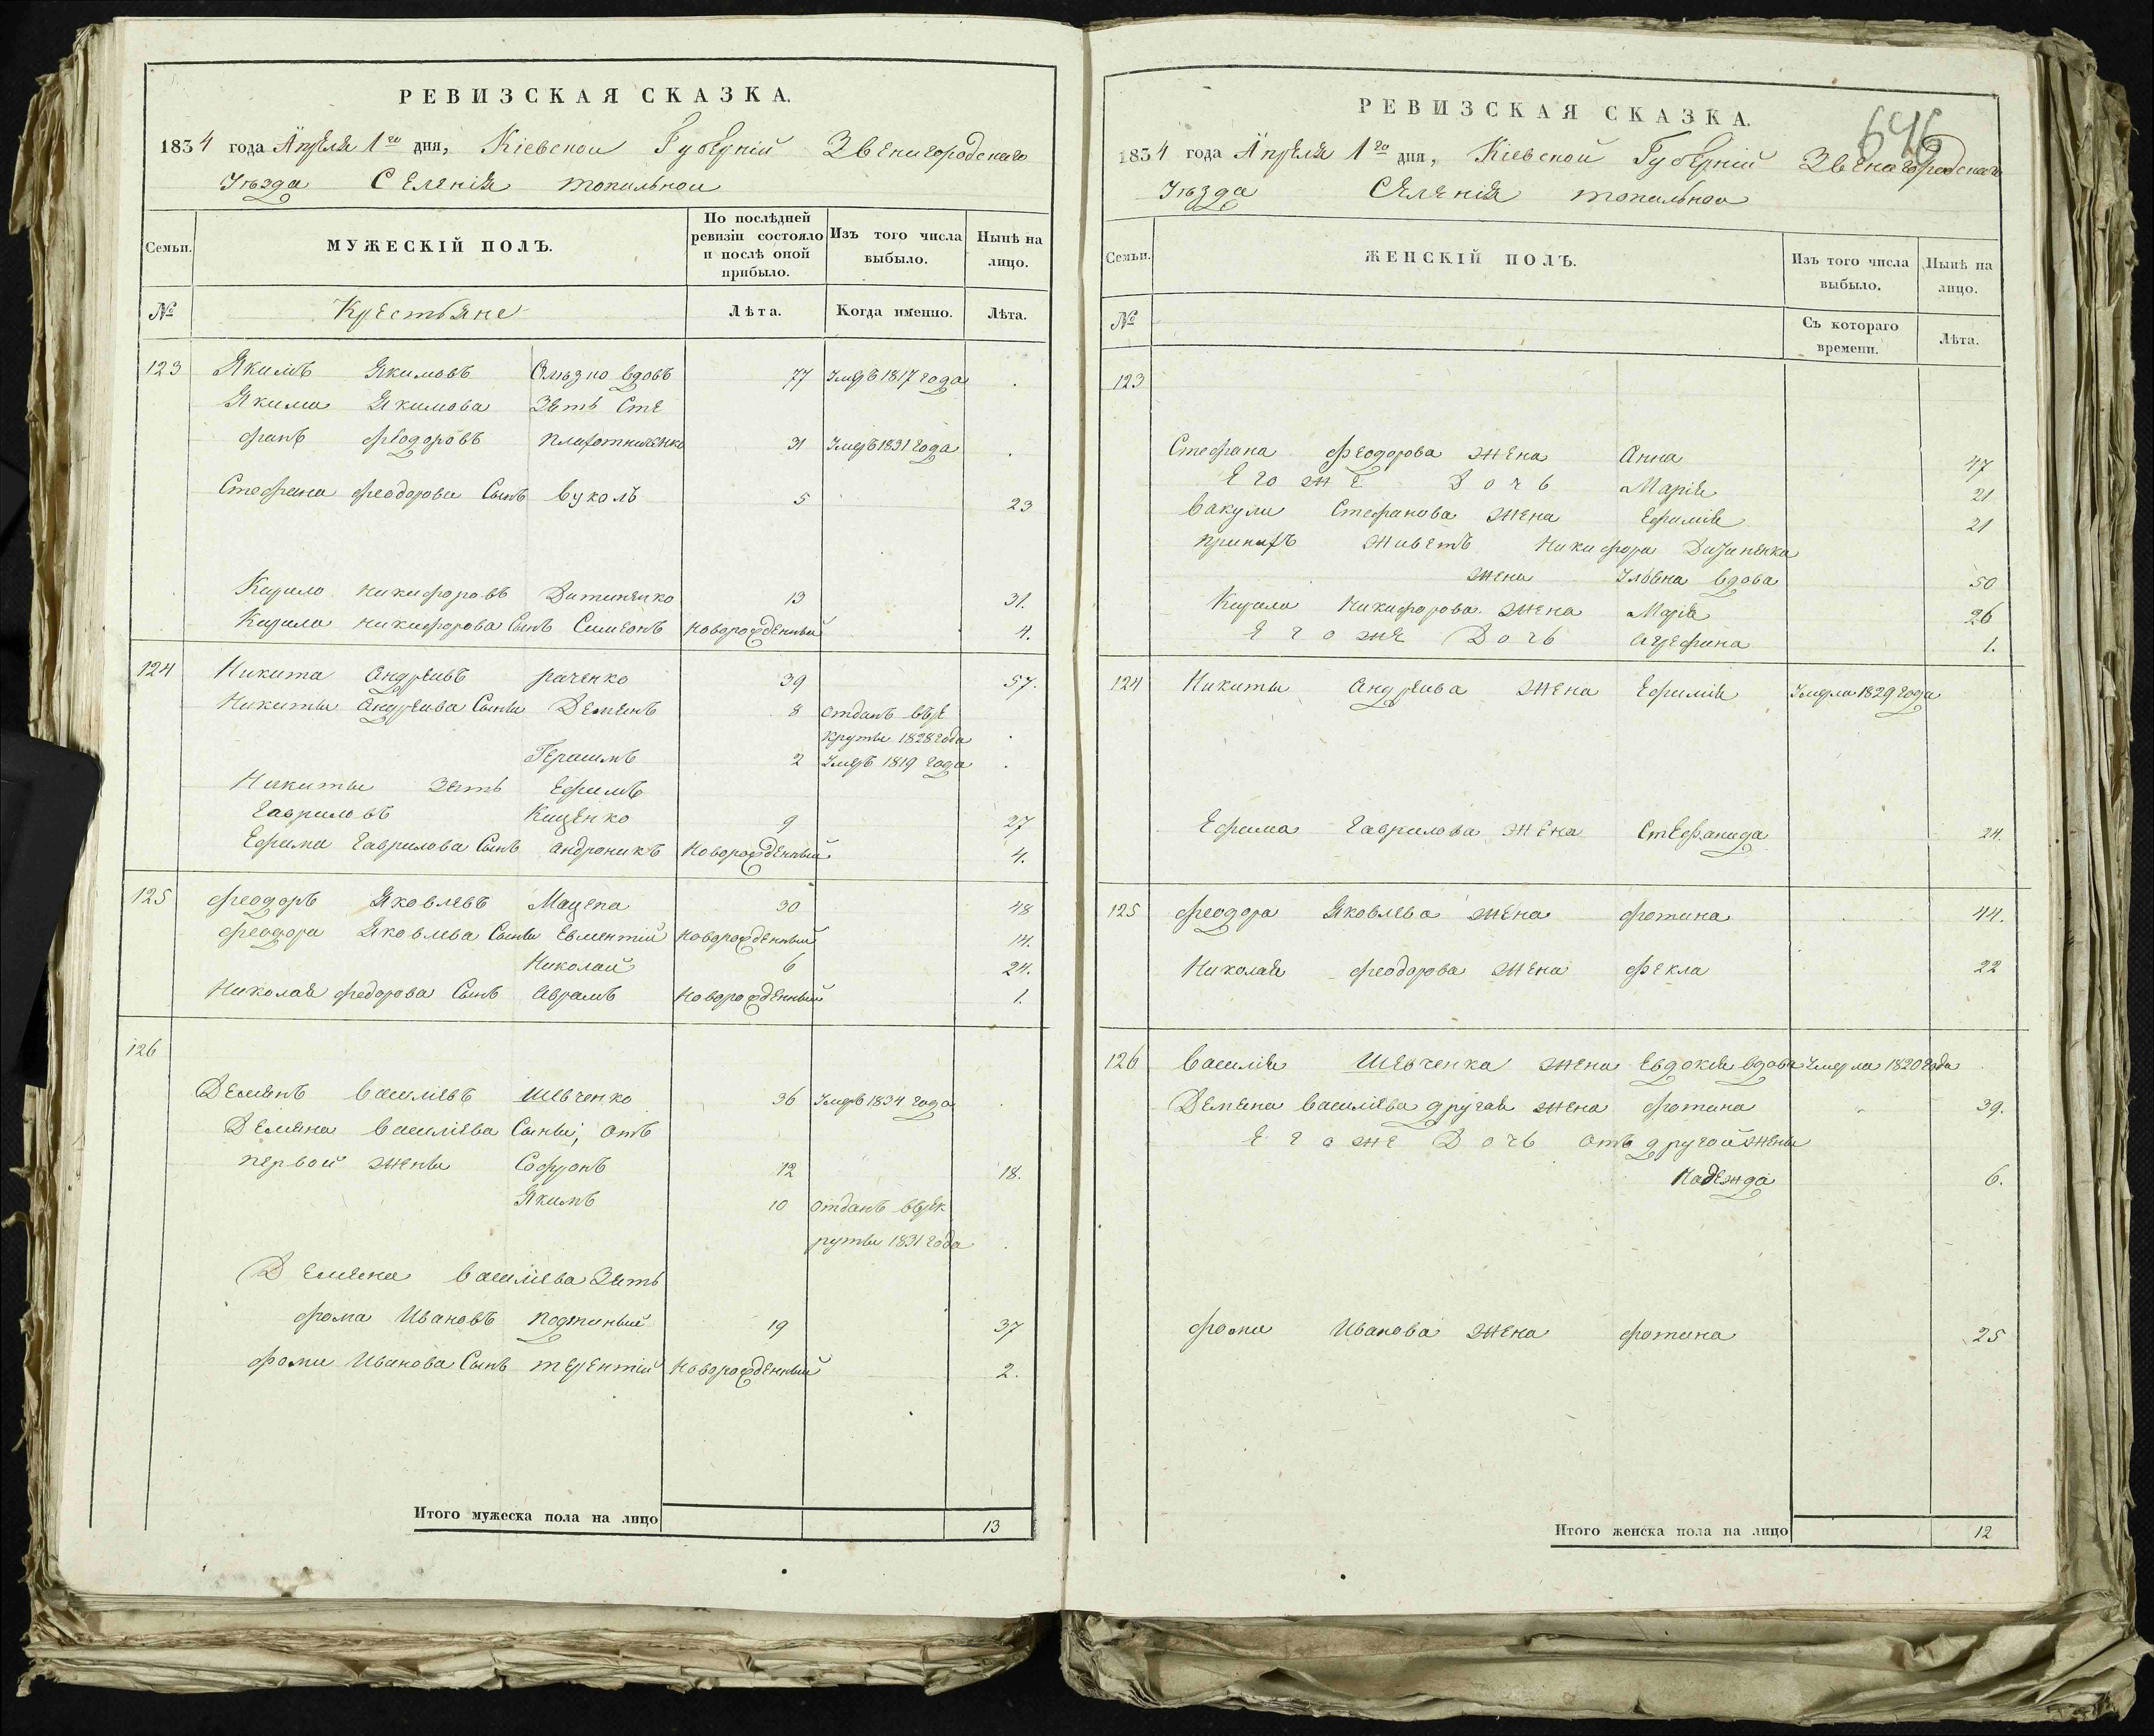 РЕВИЗСКАЯ СКАЗКА.
1834 года Апреля 1го дня, Кіевской Губерніи Звенигородскаго
Уѣзда Селенія Топильной
Семьи.
МУЖЕСКІЙ ПОЛЪ.
По послѣдней ревизіи состояло и послѣ оной прибыло.
Изъ того числа выбыло.
Нынѣ на лицо.
№
Крестьяне
Лѣта.
Когда именно.
Лѣта.
123 Якимъ Якимовъ вдовъ 77 Умеръ 1817 года
Якима Якимова Зять Сте
фанъ Феодоровъ 31 Умеръ 1831 года
Стефана Феодорова Сынъ Вуколъ 5 23
Кирило Никифоровъ 13 31.
Кирила Никифорова Сынъ Симеонъ Новорожденный 4.
124 Никита Андреевъ Раченко 39 57.
Никиты Андреева Сыны Демянъ 8 отданъ въ ре
круты 1828 года
Герасимъ 2 Умеръ 1819 года
Никиты Зять Ефимъ
Гавриловъ Киценко 9 27
Ефима Гаврилова Сынъ Андроникъ Новорожденный 4.
125 Феодоръ Яковлевъ Мацепа 30 48
Феодора Яковлева Сыны Евментій Новорожденный 14.
Николай 6 24.
Николая Федорова Сынъ Аврамъ Новорожденный 1.
126
Демянъ Василіевъ Шевченко 36 Умеръ 1834 года
Демяна Василіева Сыны, отъ
первой жены Софронъ 12 18.
Якимъ 10 отданъ въ рек
руты 1831 года
Демяна Василіева Зять
Фома Ивановъ 19 37
Фомы Иванова Сынъ Терентій Новорожденный 2.
Итого мужеска пола на лицо 13
646
РЕВИЗСКАЯ СКАЗКА.
1834 года Апреля 1го дня, Кіевской Губерніи Звенигородскаго
Уѣзда Селенія Топильной
Семьи.
ЖЕНСКІЙ ПОЛЪ.
Изъ того числа выбыло.
Нынѣ на лицо.
№
Съ котораго времени.
Лѣта.
123
Стефана Феодорова жена Анна 47
Его же Дочь Марія 21
Вакулы Стефанова жена Ефимія 21
живетъ Никифора
жена Ульяна вдова 50
Кирила Никифорова жена Марія 26
Его же Дочь Агрефина 1.
124 Никиты Андреева жена Ефимія Умерла 1829 года
Ефима Гаврилова жена Стефанида 24.
125 Феодора Яковлева жена Фотина 44.
Николая Феодорова жена Фекла 22
126 Василія Шевченка жена Евдокія вдова Умерла 1820 года
Демяна Василіева другая жена Фотина 39.
Его же Дочь отъ другой жены
Надежда 6.
Фомы Иванова жена Фотина 25
Итого женска пола на лицо 12